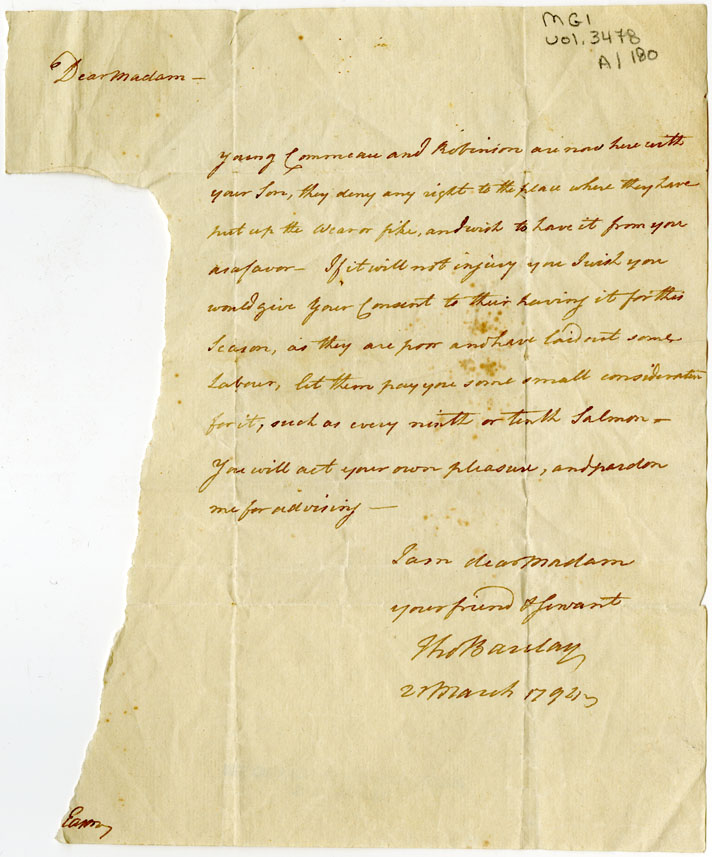 MG1
vol. 3478
A/180
Dear Madam —
Young Commeau and Robinson are now here with
your Son, they deny any right to the place where they have
put up the wear or pike, and wish to have it from you
as a favor — If it will not injury you I wish you
would give your Consent to their having it for this
Season, as they are poor and have laid out some
Labour, let them pay you some small consideration
for it, such as every ninth or tenth Salmon —
You will act your own pleasure, and pardon
me for advising —
I am dear Madam
your friend & Servant
Tho Barclay
March